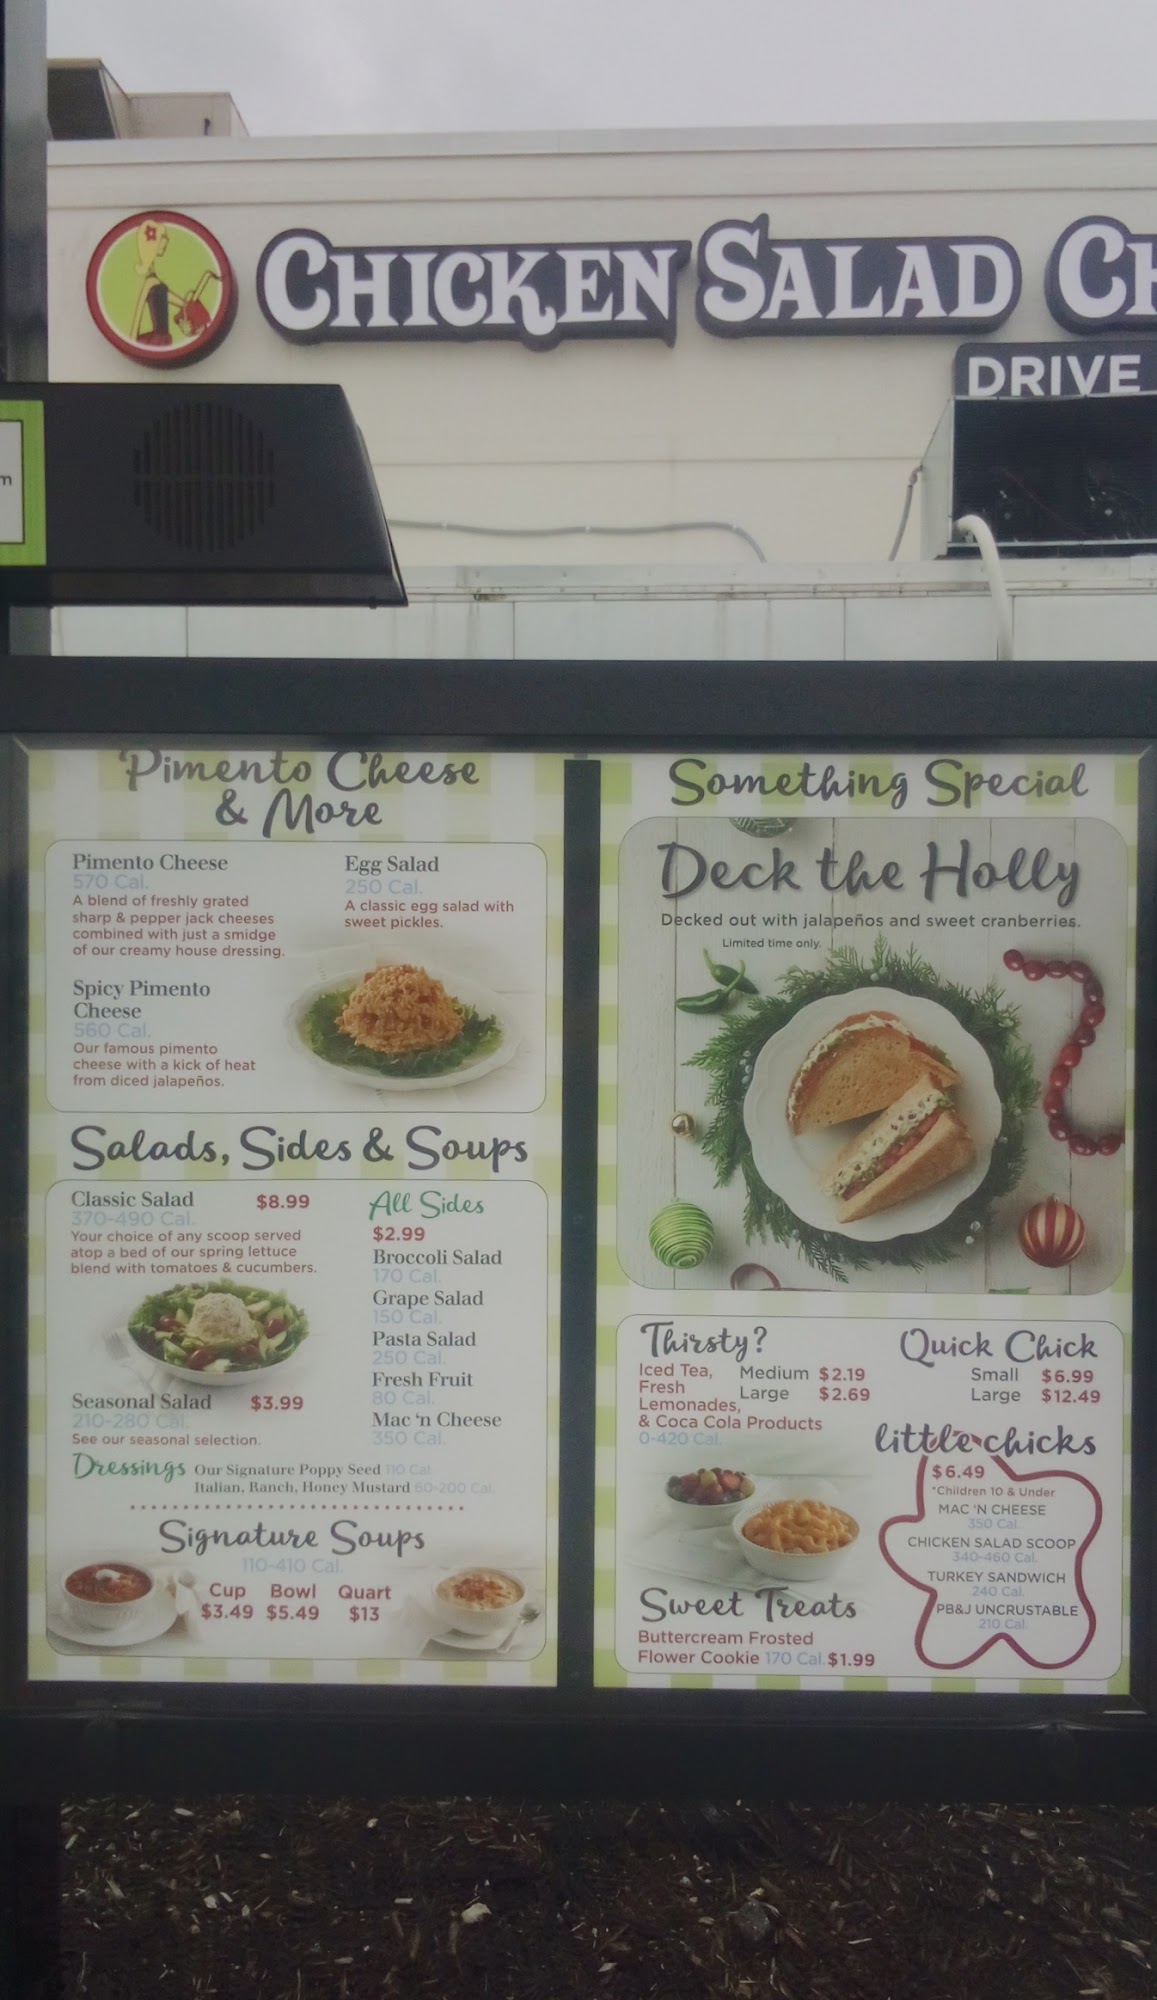 CHICKEN SALAD CH
DRIVE
m
Pimento Cheese
& More
Pimento Cheese
570 Cal.
A blend of freshly grated
sharp & pepper jack cheeses
combined with just a smidge
of our creamy house dressing.
Spicy Pimento
Cheese
560 Cal.
Our famous pimento
cheese with a kick of heat
from diced jalapeños.
Egg Salad
250 Cal.
A classic egg salad with
sweet pickles.
Salads, Sides & Soups
Classic Salad $8.99
370-490 Cal.
Your choice of any scoop served
atop a bed of our spring lettuce
blend with tomatoes & cucumbers.
Seasonal Salad $3.99
210-280 Cal.
See our seasonal selection.
All Sides
$2.99
Broccoli Salad
170 Cal.
Grape Salad
150 Cal.
Pasta Salad
250 Cal.
Fresh Fruit
80 Cal.
Mac 'n Cheese
350 Cal.
Dressings Our Signature Poppy Seed 110 Cal.
Italian, Ranch, Honey Mustard 60-200 Cal.
Signature Soups
110-410 Cal.
Cup Bowl Quart
$3.49 $5.49 $13
Something Special
Deck the Holly
Decked out with jalapeños and sweet cranberries.
Limited time only.
Thirsty?
Iced Tea,
Fresh
Lemonades,
& Coca Cola Products
0-420 Cal.
Medium $2.19
Large $2.69
Quick Chick
Small $6.99
Large $12.49
little chicks
$6.49
*Children 10 & Under
MAC 'N CHEESE
350 Cal.
CHICKEN SALAD SCOOP
340-460 Cal.
TURKEY SANDWICH
240 Cal.
PB&J UNCRUSTABLE
210 Cal.
Sweet Treats
Buttercream Frosted
Flower Cookie 170 Cal. $1.99